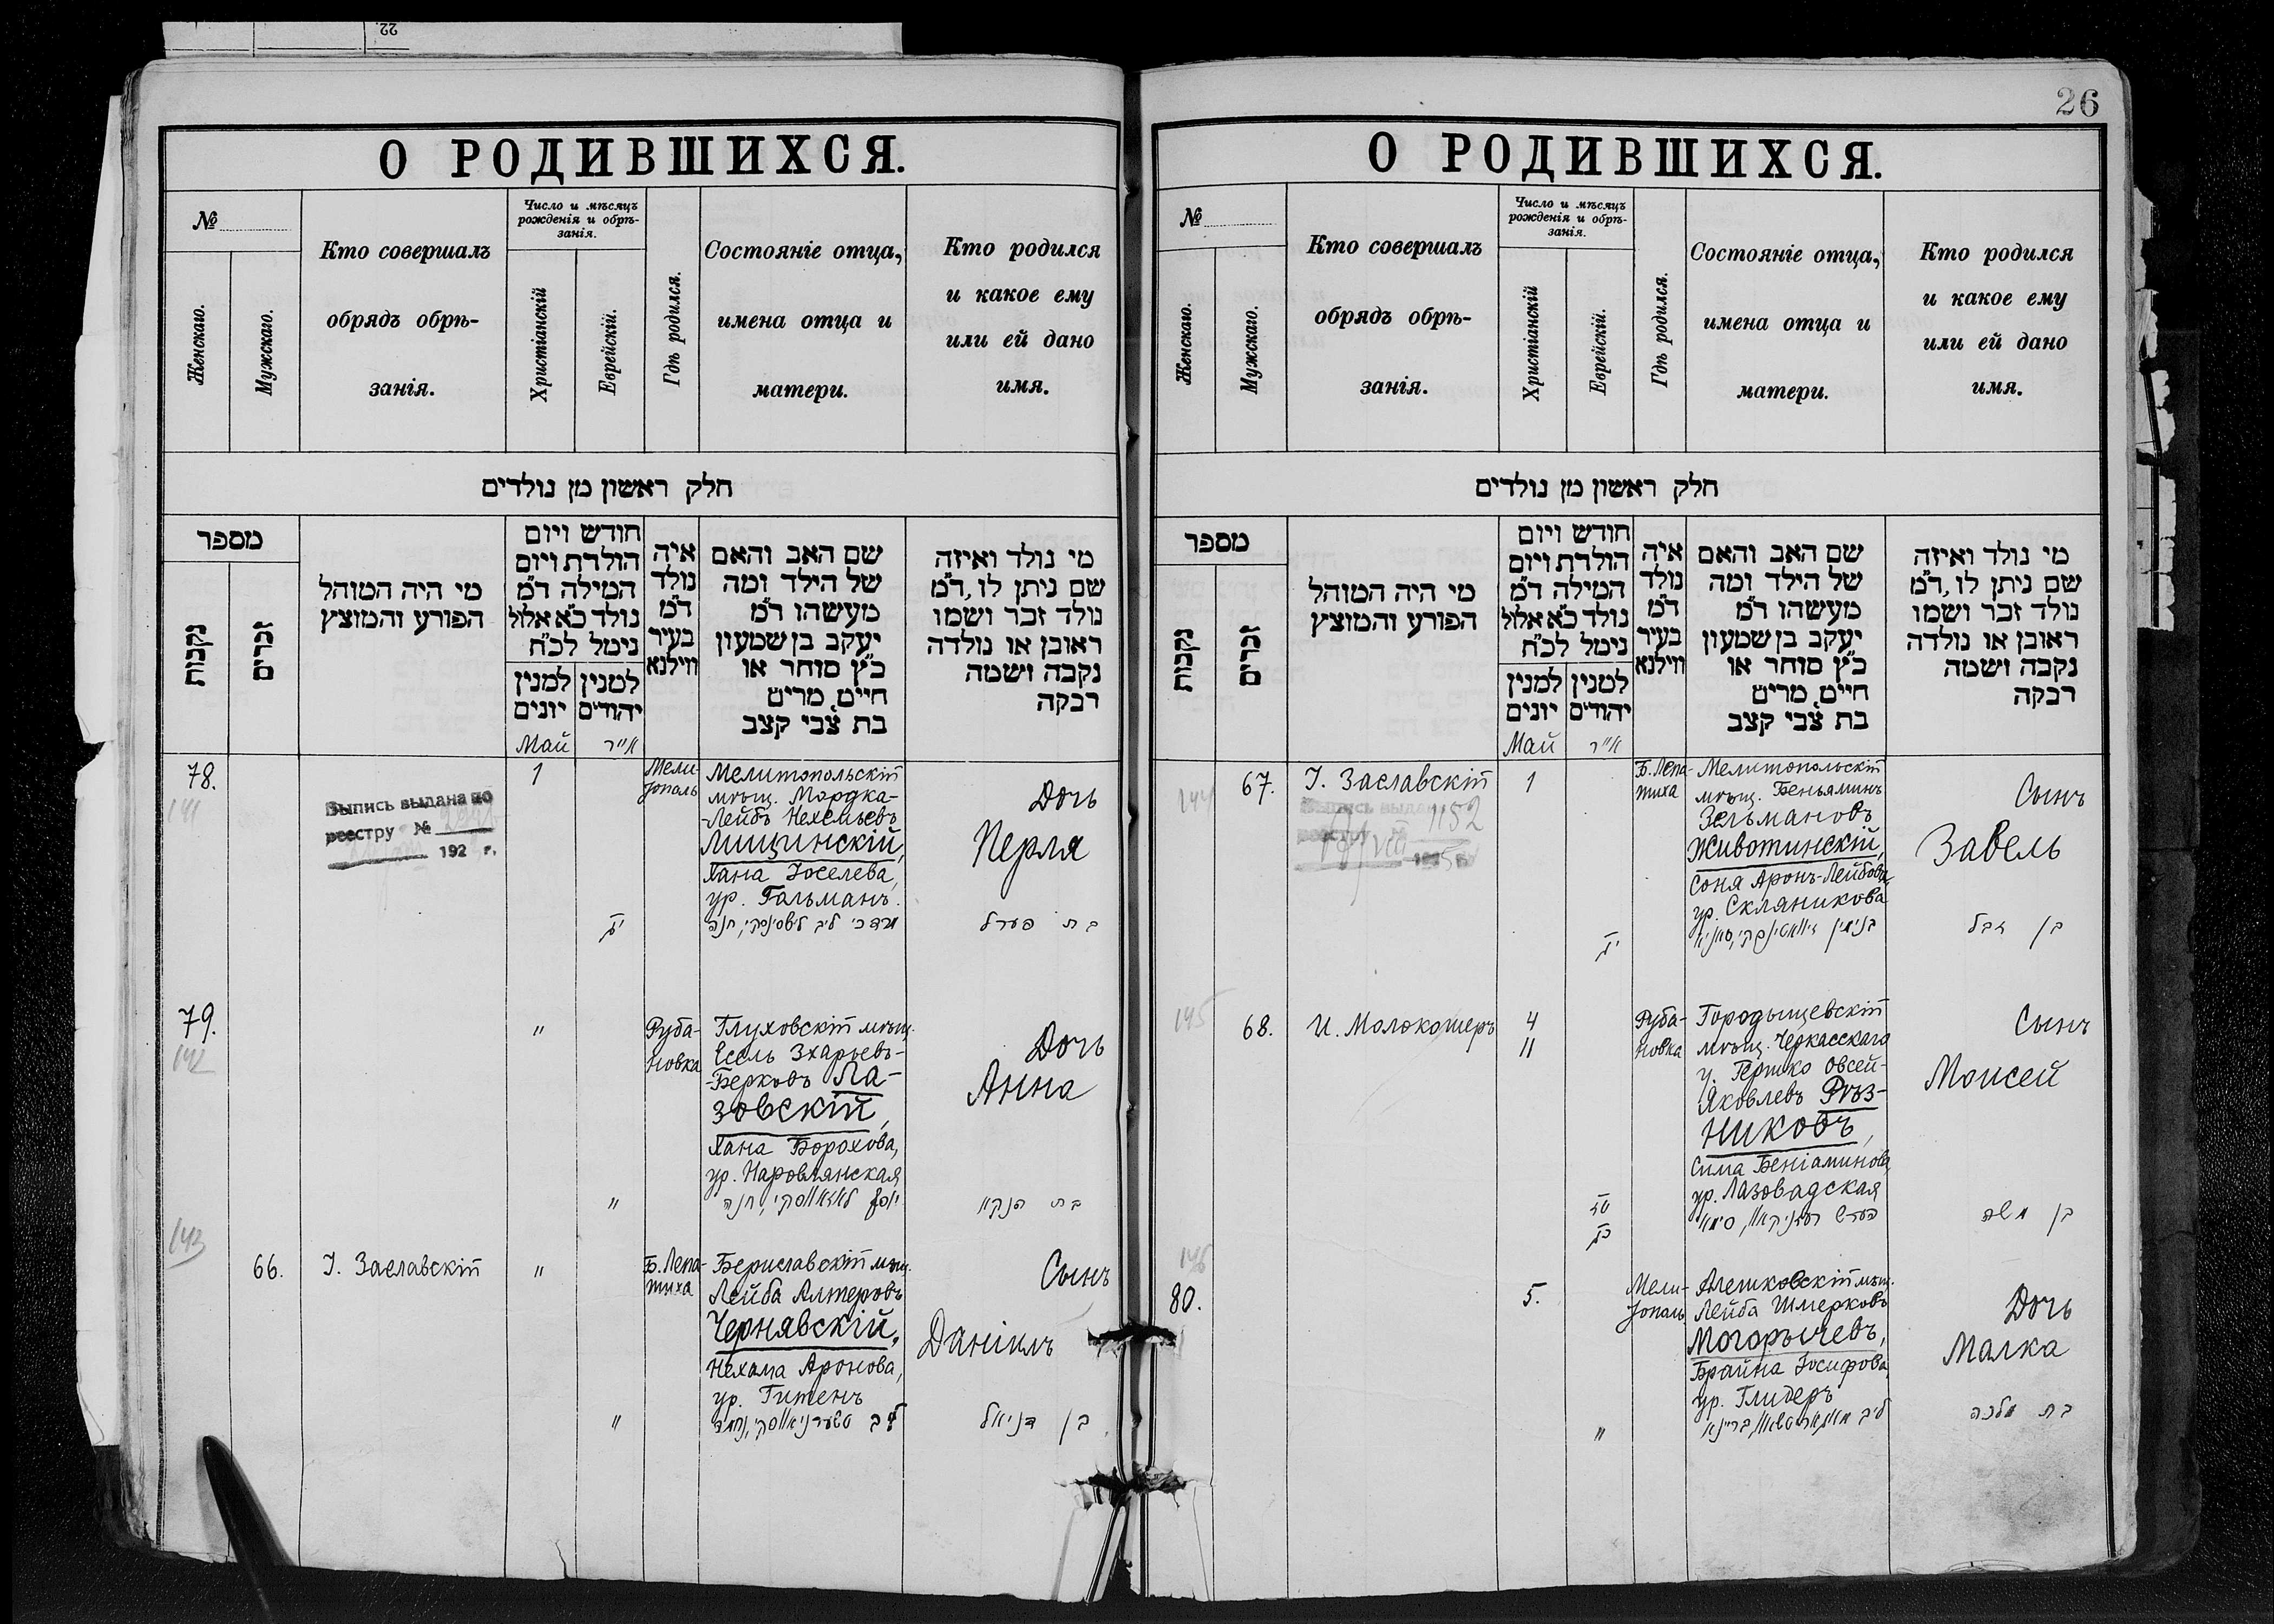 22
26
О РОДИВШИХСЯ.
№
Женскаго.
Мужскаго.
Кто совершалъ
обрядъ обрѣ-
занія.
Число и мѣсяцъ
рожденія и обрѣ-
занія.
Христіанскій
Еврейскій.
Гдѣ родился.
Состояніе отца,
имена отца и
матери.
Кто родился
и какое ему
или ей дано
имя.
חלק ראשון מן נולדים
מספר
נקבות
זכרים
מי היה המוהל
הפורע והמוצץ
חודש ויום
הולדת ויום
המילה ד״מ
נולד כ״א אלול
נימל לכ״ח
למנין
יונים
למנין
יהודים
איה
נולד
ד״מ
בעיר
ווילנא
שם האב והאם
של הילד ומה
מעשהו ד״מ
יעקב בן שמעון
כ״ץ סוחר או
חיים, מרים
בת צבי קצב
מי נולד ואיזה
שם ניתן לו, ד״מ
נולד זכר ושמו
ראובן או נולדה
נקבה ושמה
רבקה
Май
אייר
78.
141
Выпись выдана по
реестру №
192 г.
1
Мели-
тополь
Мелитопольскій
мѣщ. Мордка-
-Лейбъ Нехемьевъ
Лищинскій,
Хана Іоселева,
ур. Гальманъ.
Дочь
Перля
מרדכי ליב ליסינסקי, חנה
בת פערל
79.
142
"
Руба-
новка
Глуховскій мѣщ.
Іссель Зхарьевъ-
-Берковъ Ла-
зовскій,
Хана Борохова,
ур. Наровлянская
Дочь
Анна
"
בת חנקא
143
66.
І. Заславскій
"
Б. Лепа-
тиха
Бериславскій мѣщ.
Лейба Алтеровъ
Чернявскій,
Нехама Аронова,
ур. Гитенъ
Сынъ
Даніилъ
"
ליב טשערניאווסקי, נחמה
בן דניאל
О РОДИВШИХСЯ.
№
Женскаго.
Мужскаго.
Кто совершалъ
обрядъ обрѣ-
занія.
Число и мѣсяцъ
рожденія и обрѣ-
занія.
Христіанскій
Еврейскій.
Гдѣ родился.
Состояніе отца,
имена отца и
матери.
Кто родился
и какое ему
или ей дано
имя.
חלק ראשון מן נולדים
מספר
נקבות
זכרים
מי היה המוהל
הפורע והמוצץ
חודש ויום
הולדת ויום
המילה ד״מ
נולד כ״א אלול
נימל לכ״ח
למנין
יונים
למנין
יהודים
איה
נולד
ד״מ
בעיר
ווילנא
שם האב והאם
של הילד ומה
מעשהו ד״מ
יעקב בן שמעון
כ״ץ סוחר או
חיים, מרים
בת צבי קצב
מי נולד ואיזה
שם ניתן לו, ד״מ
נולד זכר ושמו
ראובן או נולדה
נקבה ושמה
רבקה
Май
אייר
144
67.
І. Заславскій
Выпись выдана
реестру 1152
1
Б. Лепа-
тиха
Мелитопольскій
мѣщ. Беньяминъ
Зельмановъ
Животинскій,
Соня Аронъ-Лейбова,
ур. Скляникова
Сынъ
Завель
בן זבל
145
68.
И. Молокомеръ
4
11
Руба-
новка
Городыщевскій
мѣщ. Черкасскаго
у. Гершко Овсей-
Яковлевъ Рѣз-
никовъ,
Сима Беніаминова
ур. Лазовадская
Сынъ
Моисей
הערש רעזניקאוו, סימא
בן משה
146
80.
5.
Мели-
тополь
Алешковскій мѣщ.
Лейба Шмерковъ
Могорычевъ,
Брайна Іосифова,
ур. Глидеръ
Дочь
Малка
"
בת מלכה